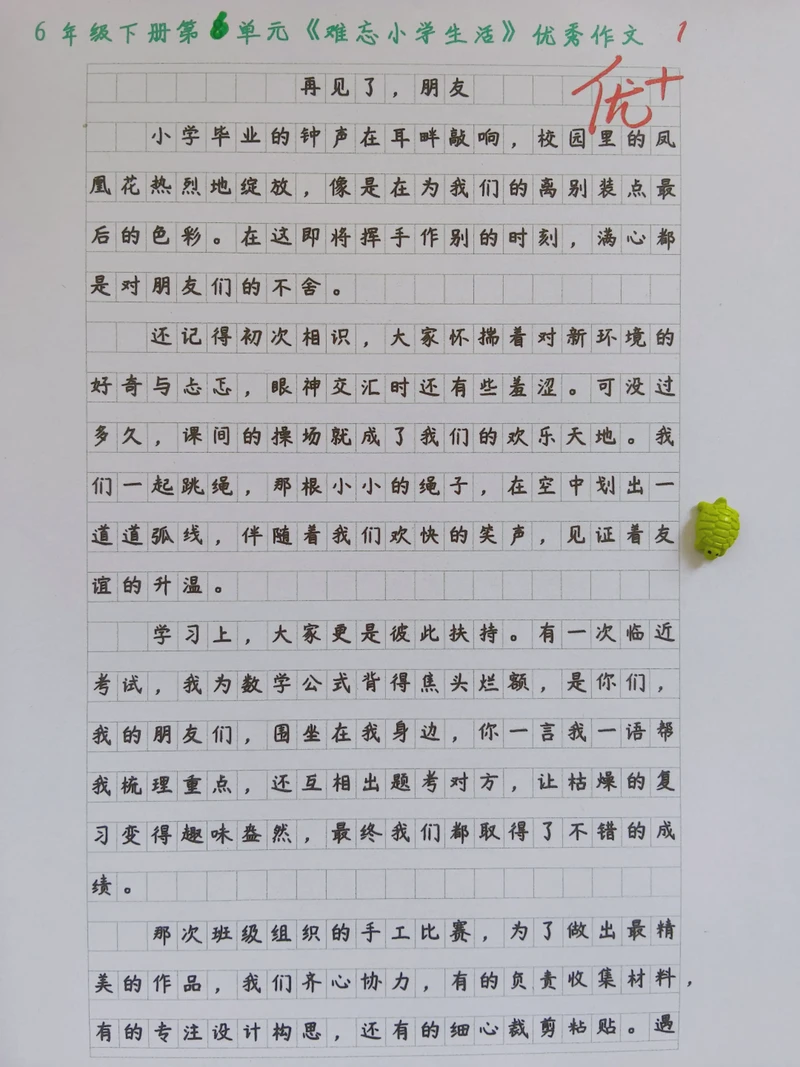 6年级下册第6单元《难忘小学生活》优秀作文 1
优+
再见了，朋友
小学毕业的钟声在耳畔敲响，校园里的凤
凰花热烈地绽放，像是在为我们的离别装点最
后的色彩。在这即将挥手作别的时刻，满心都
是对朋友们的不舍。
还记得初次相识，大家怀揣着对新环境的
好奇与忐忑，眼神交汇时还有些羞涩。可没过
多久，课间的操场就成了我们的欢乐天地。我
们一起跳绳，那根小小的绳子，在空中划出一
道道弧线，伴随着我们欢快的笑声，见证着友
谊的升温。
学习上，大家更是彼此扶持。有一次临近
考试，我为数学公式背得焦头烂额，是你们，
我的朋友们，围坐在我身边，你一言我一语帮
我梳理重点，还互相出题考对方，让枯燥的复
习变得趣味盎然，最终我们都取得了不错的成
绩。
那次班级组织的手工比赛，为了做出最精
美的作品，我们齐心协力，有的负责收集材料，
有的专注设计构思，还有的细心裁剪粘贴。遇